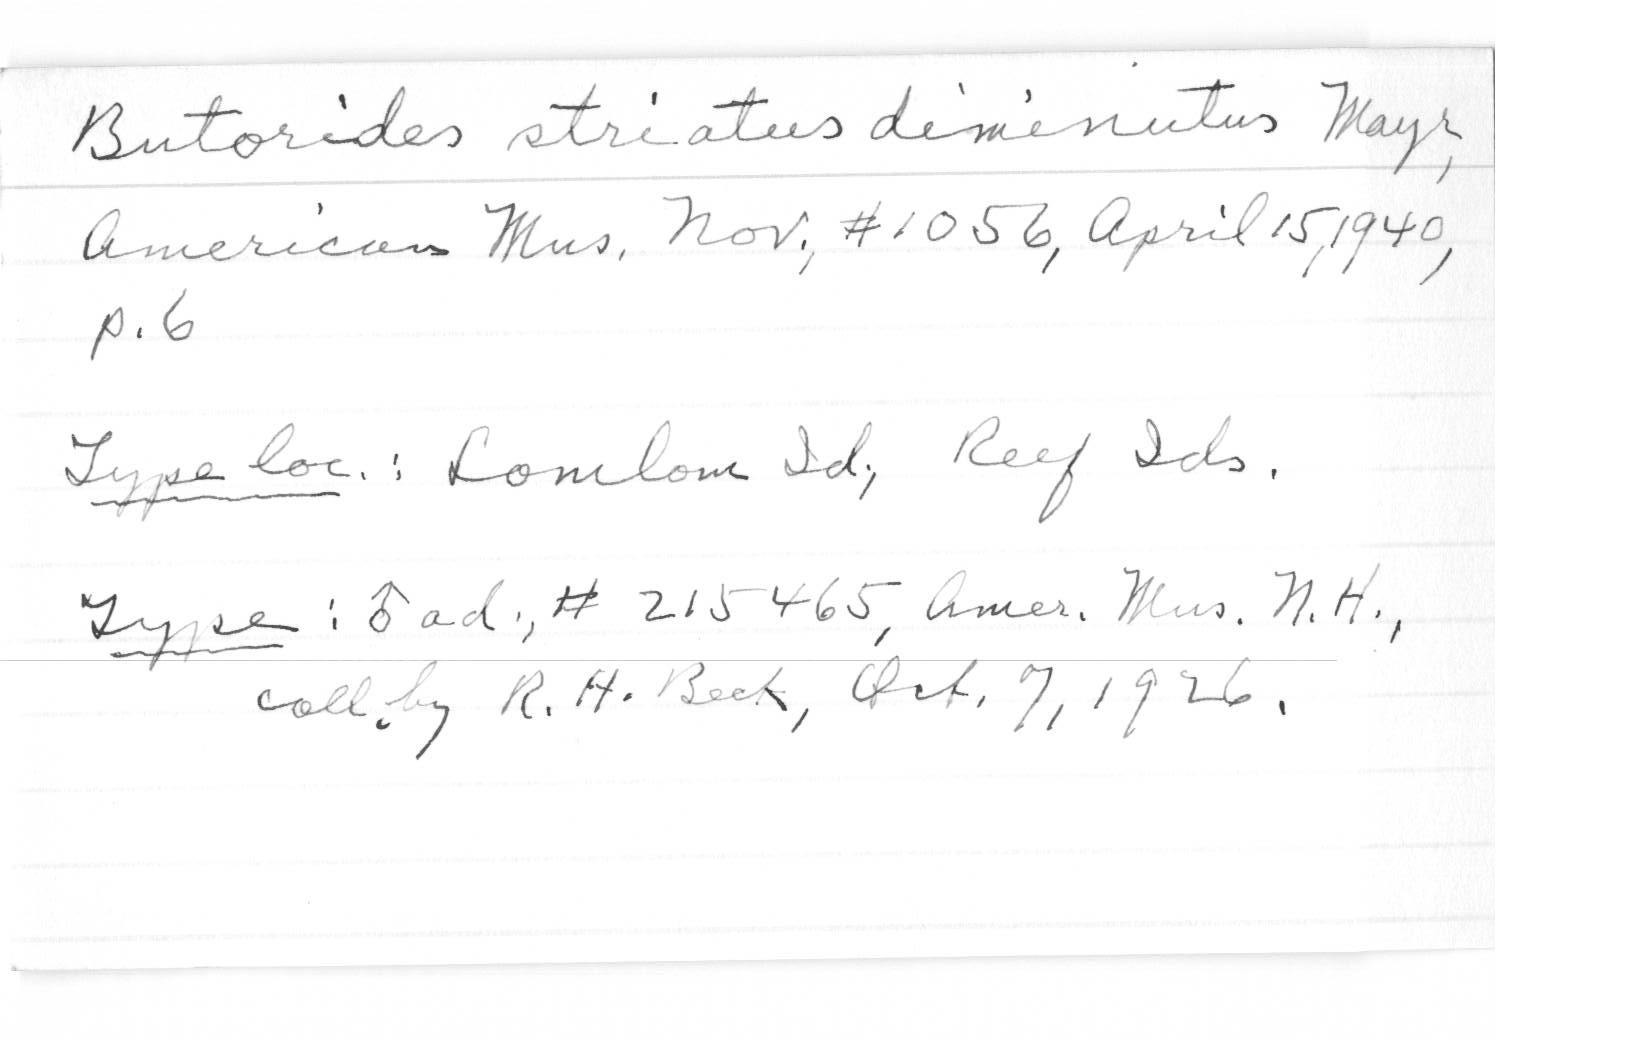 Butorides striatus diminutus Mayr,
American Mus. Nov., #1056, April 15, 1940,
p. 6
Type loc.: Lomlom Id., Reef Ids.
Type: ♂ ad., # 215465, Amer. Mus. N.H.,
coll. by R. H. Beck, Oct. 7, 1926.